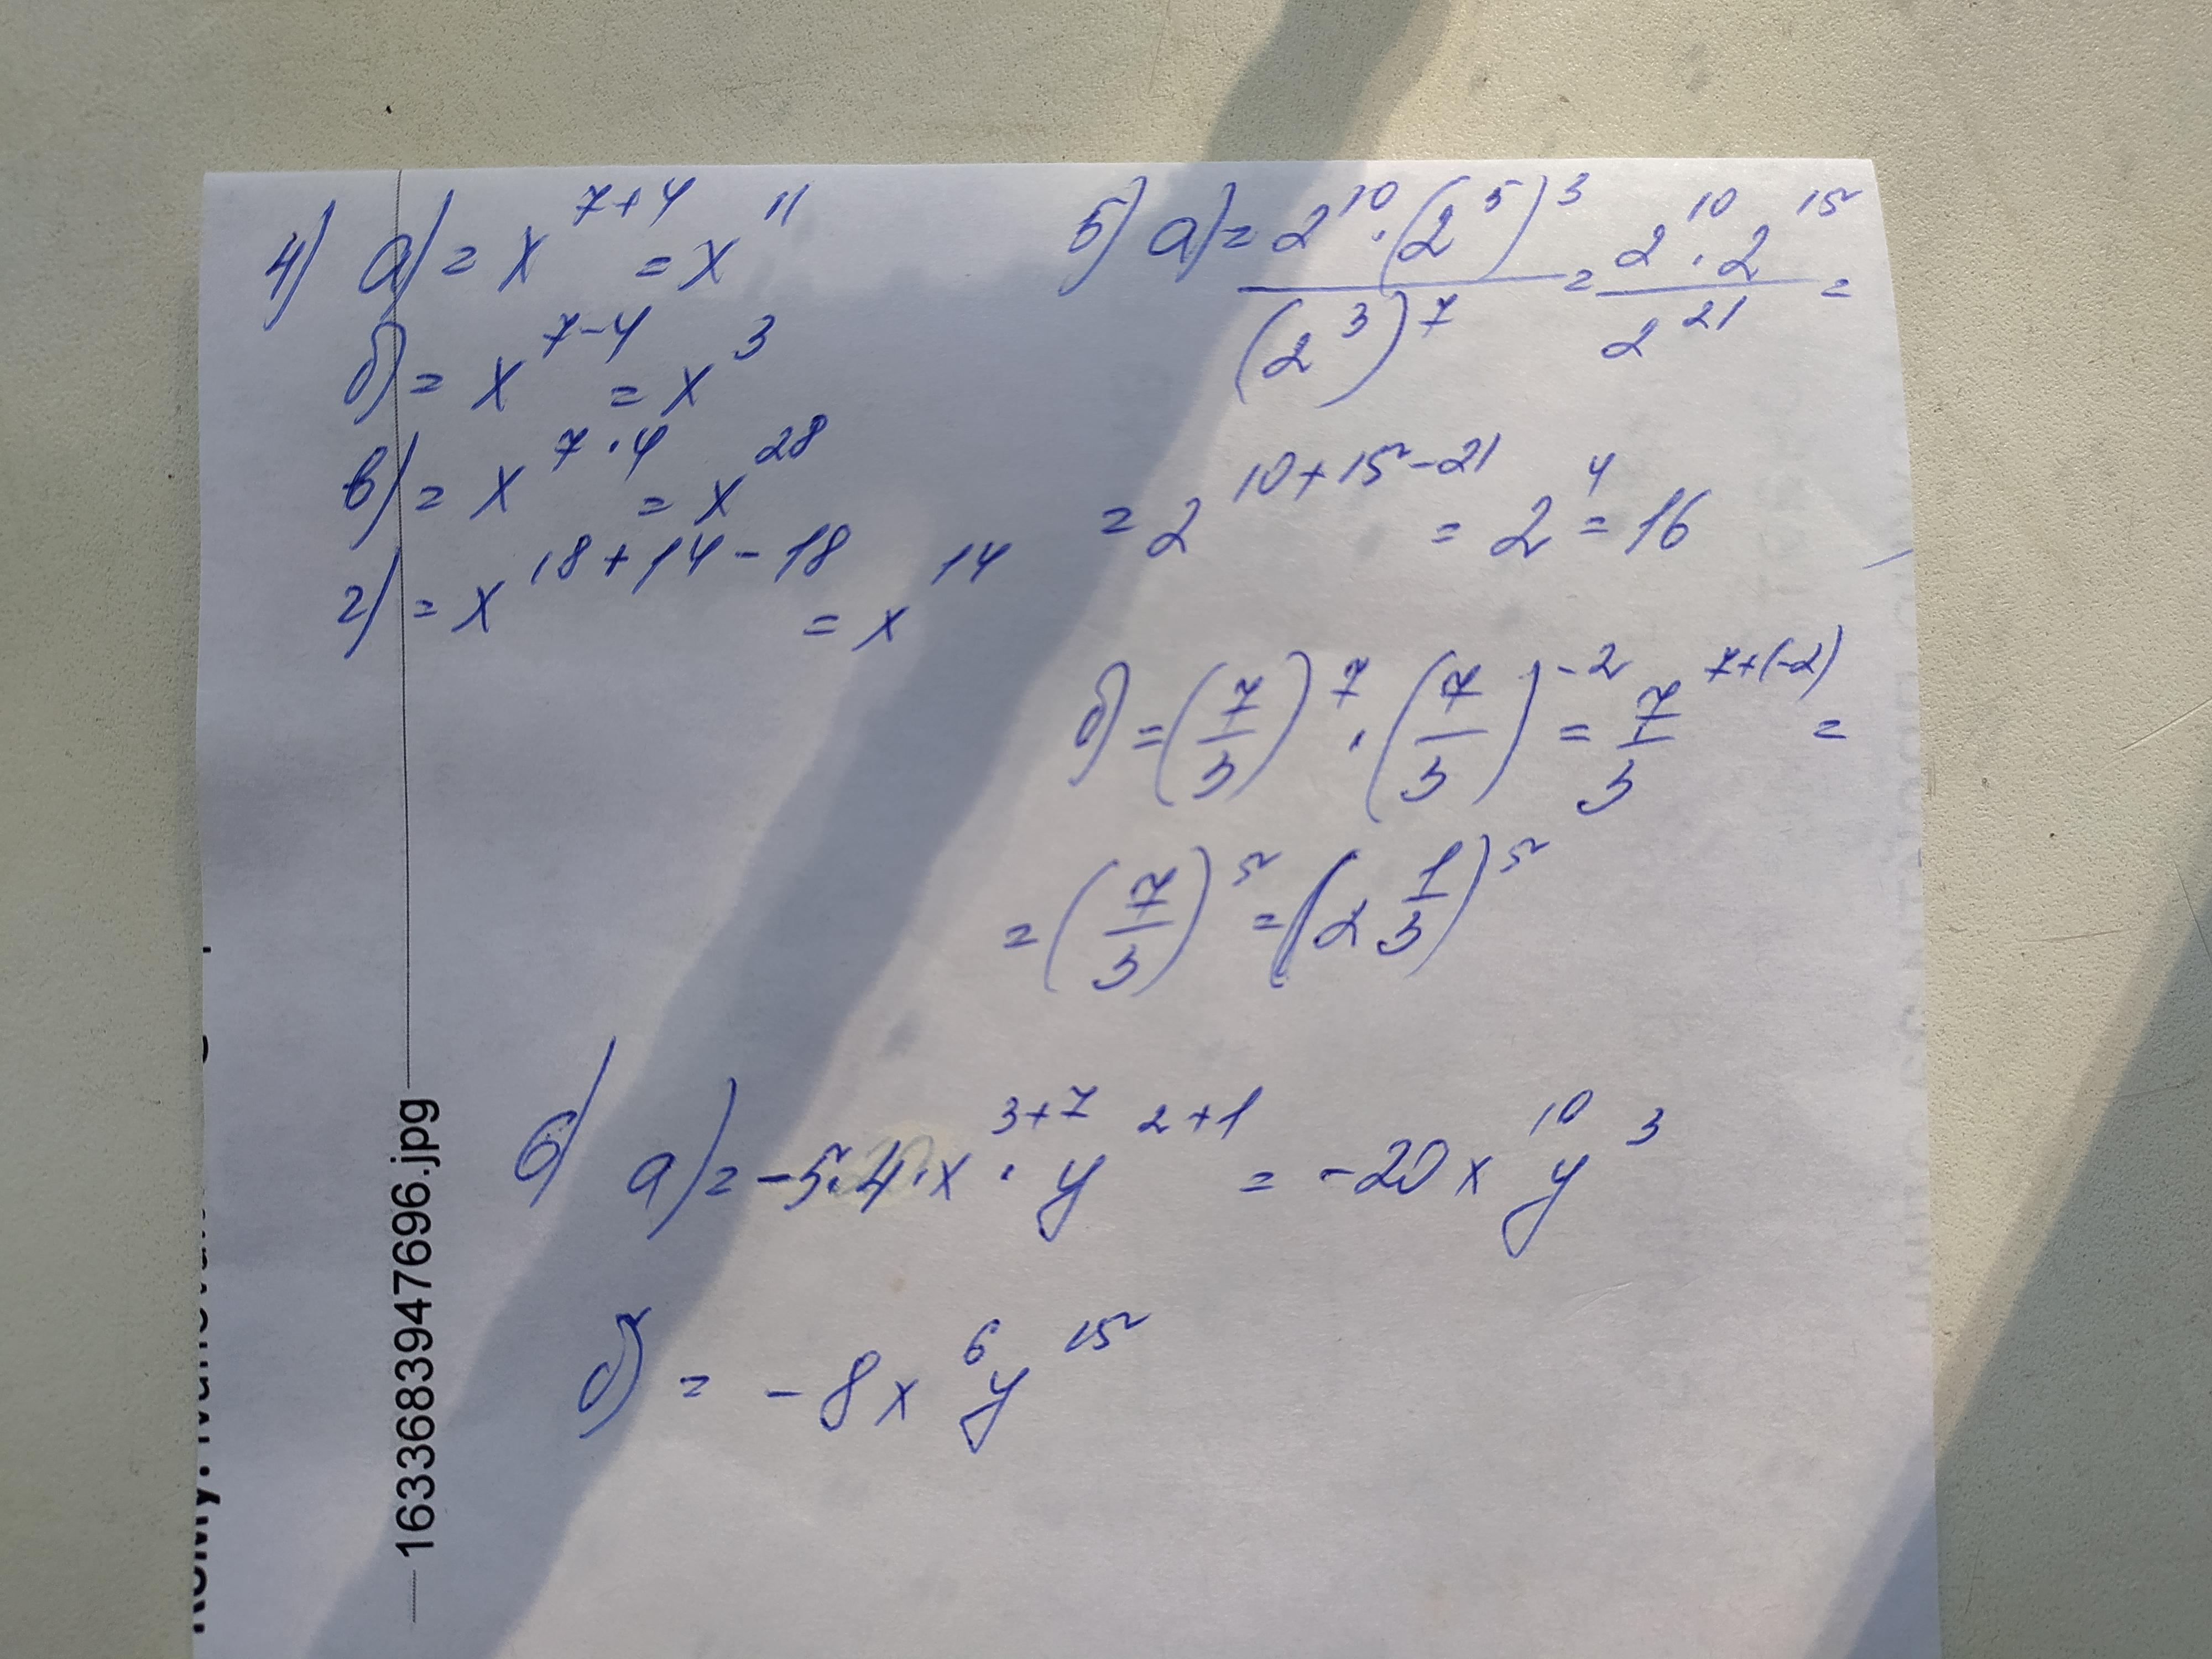 4) а) = x^{7+4} = x^{11}
б) = x^{7-4} = x^3
в) = x^{7·4} = x^{28}
г) = x^{18+14-18} = x^{14}
5) а) = \frac{2^{10}·(2^5)^3}{(2^3)^7} = \frac{2^{10}·2^{15}}{2^{21}} =
= 2^{10+15-21} = 2^4 = 16
б) = (\frac{7}{3})^7 · (\frac{7}{3})^{-2} = \frac{7}{3}^{7+(-2)} =
= (\frac{7}{3})^5 = (2\frac{1}{3})^5
6) а) = -5·4·x^{3+7}·y^{2+1} = -20x^{10}y^3
б) = -8x^6y^{15}
1633683947696.jpg